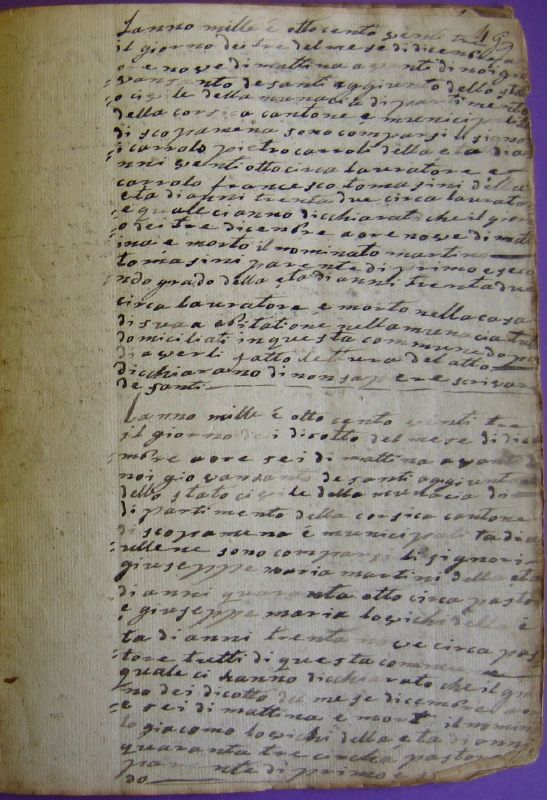 L'anno mille è otto cento venti tre
il giorno dei tre del mese di dicembre
ore nove di mattina avanti di noi gio
vannsanto de santi aggiunto dello sta
o civile della munacia di partimento
della corsica cantone e municipalità
di scopamena sono comparsi li signo
i carrolo pietro carroli della età di a
nni venti otto circa lavratore e
carrolo francesco tomasini della
età di anni trenta due circa lavrator
e quale ci anno dicchiarato che il gior
o dei tre dicembre a ore nove di mat
ina e morto il nominato martino
tomasini parente di primo e seco
ndo grado della età di anni trenta due
circa lavratore e morto nella casa
di sua abitatione nella munacia tut
domiciliati in questa commune do po
di averli fatto letura del atto
dicchiarano di non sapere scrivar
de santi
L'anno mille è otto cento venti tre
il giorno dei disotto del mese di dice
mbre a ore sei di mattina avanti di
noi giovansanto de santi aggiunt
dello stato civile della munacia di
di partimento della corsica cantone
di scopamena è municipali tà di a
ullene sono comparsi li signori
giuseppe maria martini della eta
di anni quaranta otto circa pastor
e giuseppe maria lovichi della è
tà di anni trenta nove circa pas
tore tutti di questa commune e
quale ci hanno dicchiarato che il gio
no dei dicotto del mese dicembre a o
e sei di mattina è mort il nomin
to giacomo lovichi della età di anni
quaranta tre circha pastor
parente di primo e
do